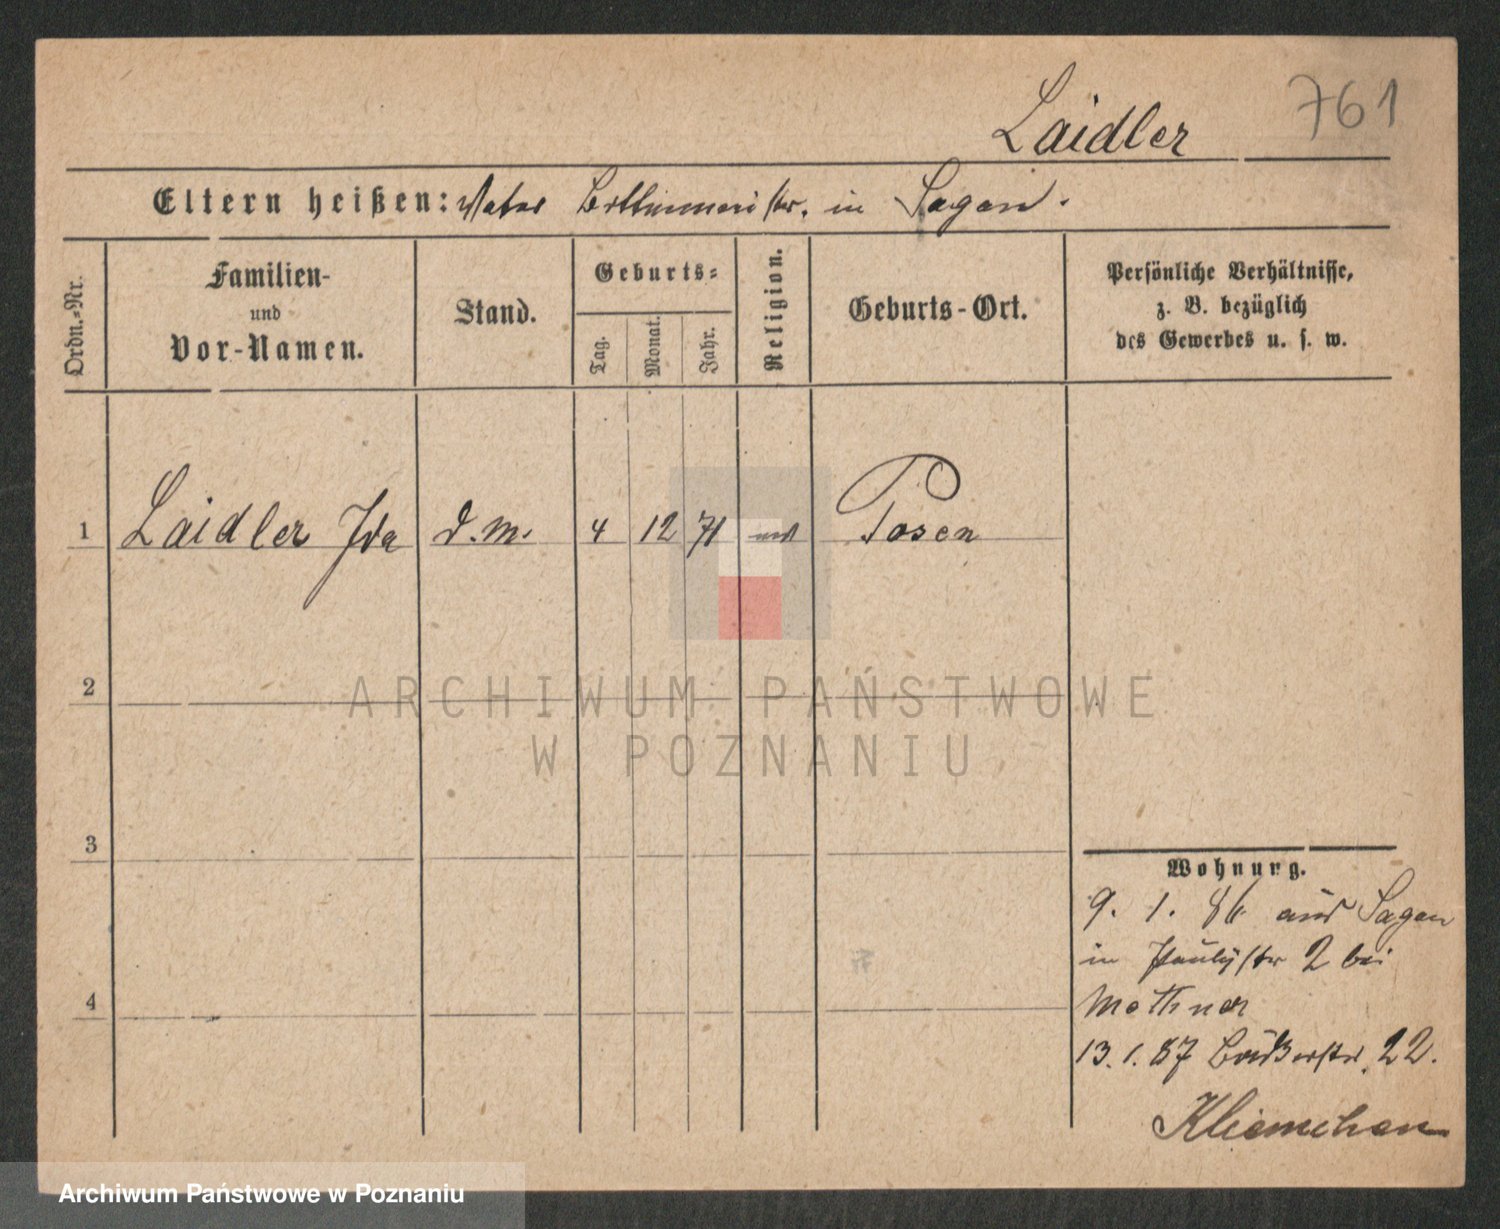 761
Laidler
Eltern heißen: Vater in Sagan.
Ordn.-Nr.
Familien-
und
Vor-Namen.
Stand.
Geburts-
Tag.
Monat.
Jahr.
Religion.
Geburts-Ort.
Persönliche Verhältnisse,
z. B. bezüglich
des Gewerbes u. s. w.
1 Laidler Ida d. M. 4 12 71 Posen
2
3
4
Wohnung.
9. 1. 86 aus Sagan
in Paulystr 2 bei
Methner
13. 1. 87 22.
ARCHIWUM PAŃSTWOWE
W POZNANIU
Archiwum Państwowe w Poznaniu